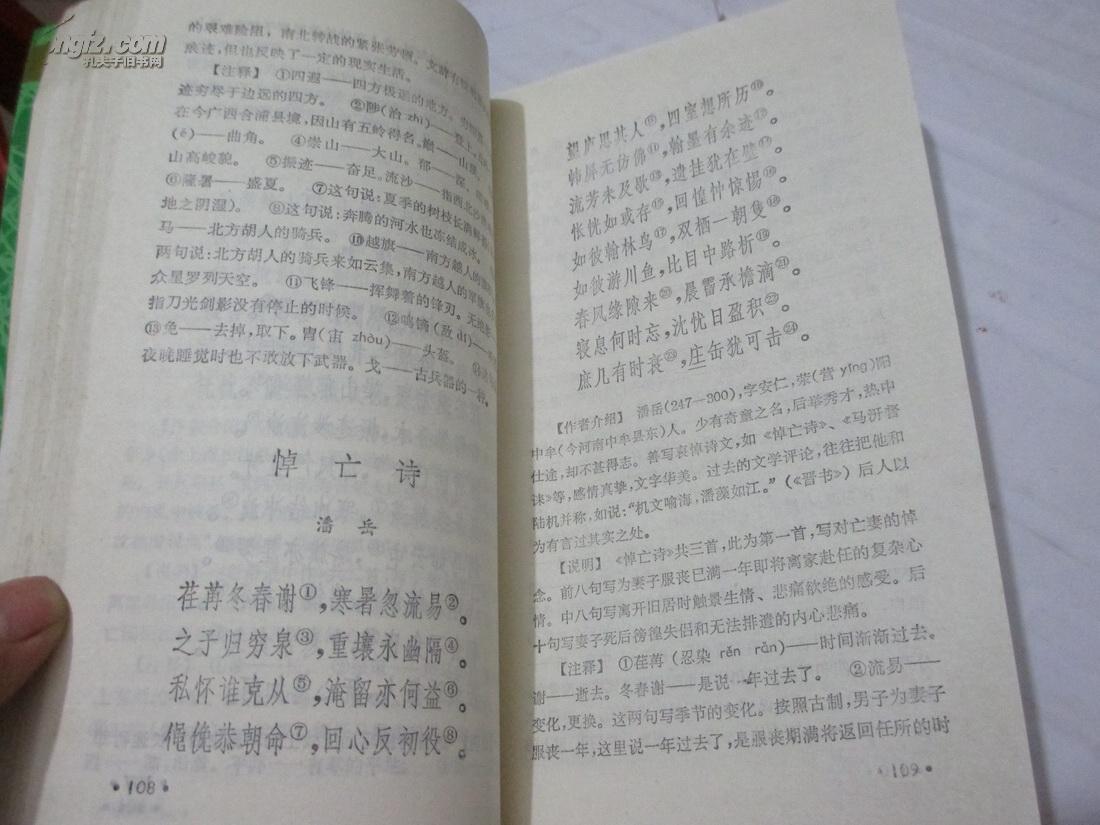 kongfz.com
孔夫子旧书网
的艰难险阻，南北转战的紧张劳顿。文辞有
痕迹，但也反映了一定的现实生活。
【注释】 ①四遐——四方极远的地方。
迹穷尽于边远的四方。 ②陟（治 zhì）——登上。
在今广西合浦县境，因山有五岭得名。巘——山
（ě）——曲角。 ④崇山——大山。郁——深。
山高峻貌。 ⑤振迹——奋足。流沙——指西北沙
⑥隆暑——盛夏。 ⑦这句说：夏季的树枝长满
地之阴湿）。 ⑧这句说：奔腾的河水也冻结成冰。
马——北方胡人的骑兵。 ⑩越旗——南方越人的
两句说：北方胡人的骑兵来如云集，南方越人的军旗
众星罗列天空。 ⑪飞锋——挥舞着的锋刃。无
指刀光剑影没有停止的时候。 ⑫鸣镝（敌 dí）——
⑬免——去掉，取下。胄（宙 zhòu）——头盔。
夜晚睡觉时也不敢放下武器。戈——古兵器的一种。
悼亡诗
潘岳
荏苒冬春谢①，寒暑忽流易②。
之子归穷泉③，重壤永幽隔④。
私怀谁克从⑤，淹留亦何益⑥。
僶俛恭朝命⑦，回心反初役⑧。
·108·
望庐思其人⑨，四室想所历⑩。
帏屏无仿佛⑪，翰墨有余迹⑫。
流芳未及歇⑬，遗挂犹在壁⑭。
怅恍如或存⑮，回惶忡惊惕⑯。
如彼翰林鸟⑰，双栖一朝隻⑱。
如彼游川鱼，比目中路析⑲。
春风缘隙来⑳，晨霤承檐滴㉑。
寝息何时忘，沈忧日盈积㉒。
庶几有时衰㉓，庄缶犹可击㉔。
【作者介绍】 潘岳（247—300），字安仁，荥（营 yíng）阳
中牟（今河南中牟县东）人。少有奇童之名，后举秀才，热中
仕途，却不甚得志。善写哀悼诗文，如《悼亡诗》、《马汧督
诔》等，感情真挚，文字华美。过去的文学评论，往往把他和
陆机并称，如说：“机文喻海，潘藻如江。”（《晋书》）后人以
为有言过其实之处。
【说明】 《悼亡诗》共三首，此为第一首，写对亡妻的悼
念。前八句写为妻子服丧已满一年即将离家赴任的复杂心
情。中八句写离开旧居时触景生情、悲痛欲绝的感受。后
十句写妻子死后傍徨失侣和无法排遣的内心悲痛。
【注释】 ①荏苒（忍染 rěn rǎn）——时间渐渐过去。
谢——逝去。冬春谢——是说一年过去了。 ②流易——
变化，更换。这两句写季节的变化。按照古制，男子为妻子
服丧一年，这里说一年过去了，是服丧期满将返回任所的时
·109·